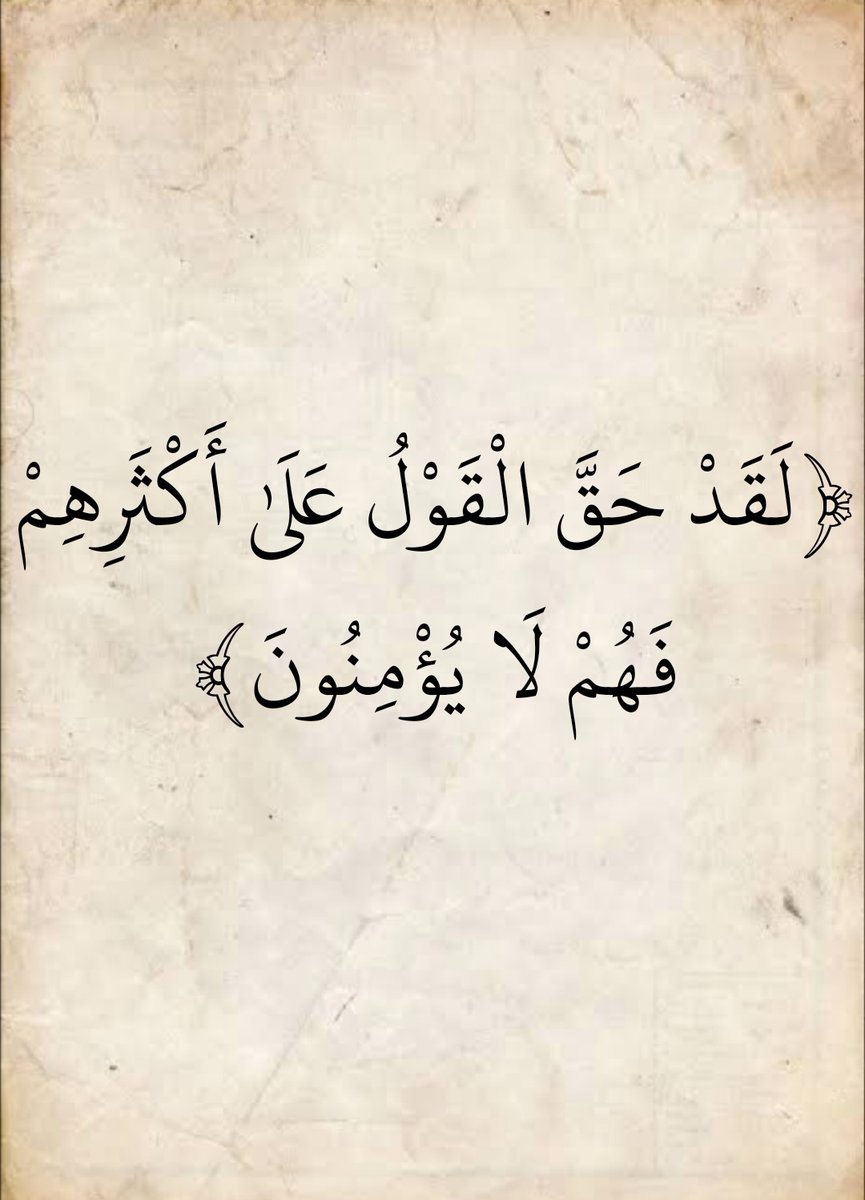 ﴿لَقَدْ حَقَّ الْقَوْلُ عَلَىٰ أَكْثَرِهِمْ
فَهُمْ لَا يُؤْمِنُونَ﴾